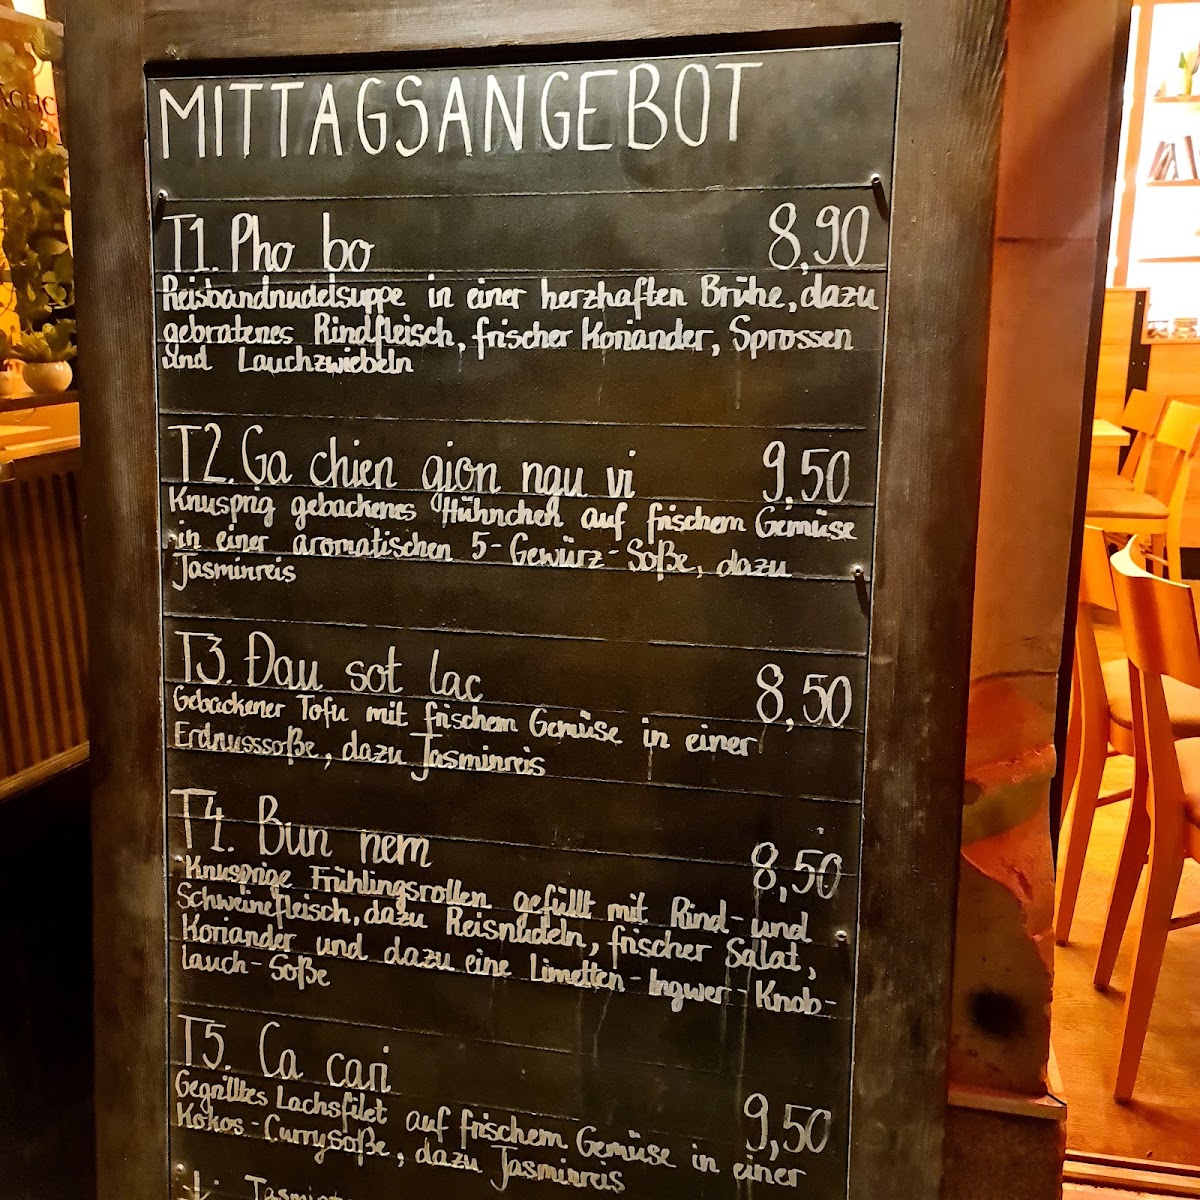 MITTAGSANGEBOT
T1. Pho bo 8,90
Reisbandnudelsuppe in einer herzhaften Brühe, dazu
gebratenes Rindfleisch, frischer Koriander, Sprossen
und Lauchzwiebeln
T2. Ga chien gion ngu vi 9,50
Knusprig gebackenes Hühnchen auf frischem Gemüse
in einer aromatischen 5-Gewürz-Soße, dazu
Jasminreis
T3. Đau sot lac 8,50
Gebackener Tofu mit frischem Gemüse in einer
Erdnusssoße, dazu Jasminreis
T4. Bun nem 8,50
Knusprige Frühlingsrollen gefüllt mit Rind- und
Schweinefleisch, dazu Reisnudeln, frischer Salat,
Koriander und dazu eine Limetten-Ingwer-Knob-
lauch-Soße
T5. Ca cari 9,50
Gegrilltes Lachsfilet auf frischem Gemüse in einer
Kokos-Currysoße, dazu Jasminreis